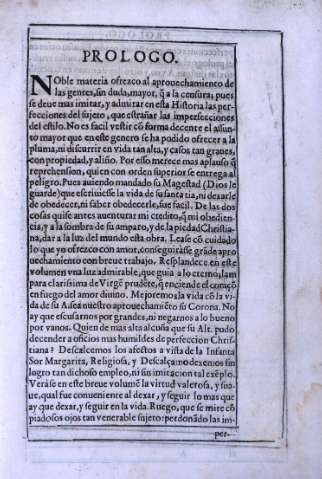 PROLOGO.
NOble materia ofrezco al aprouechamiento de
las gentes, sin duda, mayor, q̃ a la censura; pues
se deue mas imitar, y admirar en esta Historia las per-
fecciones del sujeto, que estrañar las imperfecciones
del estilo. No es facil vestir cõ forma decente el assun-
to mayor que en este genero se ha podido ofrecer a la
pluma, ni discurrir en vida tan alta, y casos tan graues,
con propiedad, y aliño. Por esso merece mas aplauso q̃
reprehension, quien con orden superior se entrega al
peligro. Pues auiendo mandado su Magestad (Dios le
guarde) que escriuiesse la vida de su santa tia, ni dexarle
de obedecer, ni saber obedecerle, fue facil. De las dos
cosas quise antes auenturar mi credito, q̃ mi obedien-
cia, y a la sombra de su amparo, y de la piedad Christia-
na, dar a la luz del mundo esta obra. Lease cõ cuidado
lo que yo ofrezco con amor, conseguiràse grãde apro-
uechamiento con breue trabajo. Resplandece en este
volumen vna luz admirable, que guia a lo eterno, lam
para clarissima de Virgẽ prudẽte, q̃ enciende el coraçõ
en fuego del amor diuino. Mejoremos la vida cõ la vi-
da de su A. sea nuestro aprouechamiẽto su Corona. No
ay que escusarnos por grandes, ni negarnos a lo bueno
por vanos. Quien de mas alta cuna que su Alt. pudo
decender a oficios mas humildes de perfeccion Chris-
tiana? Descalcemos los afectos a vista de la Infanta
Sor Margarita, Religiosa, y Descalça: no dexemos sin
logro tan dichoso empleo, ni sin imitacion tal exẽplo.
Veràse en este breue volumẽ la virtud valerosa, y sua-
ue, qual fue conueniente al dexar, y seguir lo mas que
ay que dexar, y seguir en la vida. Ruego, que se mire cõ
piadosos ojos tan venerable sujeto: perdonãdo las im-
per-